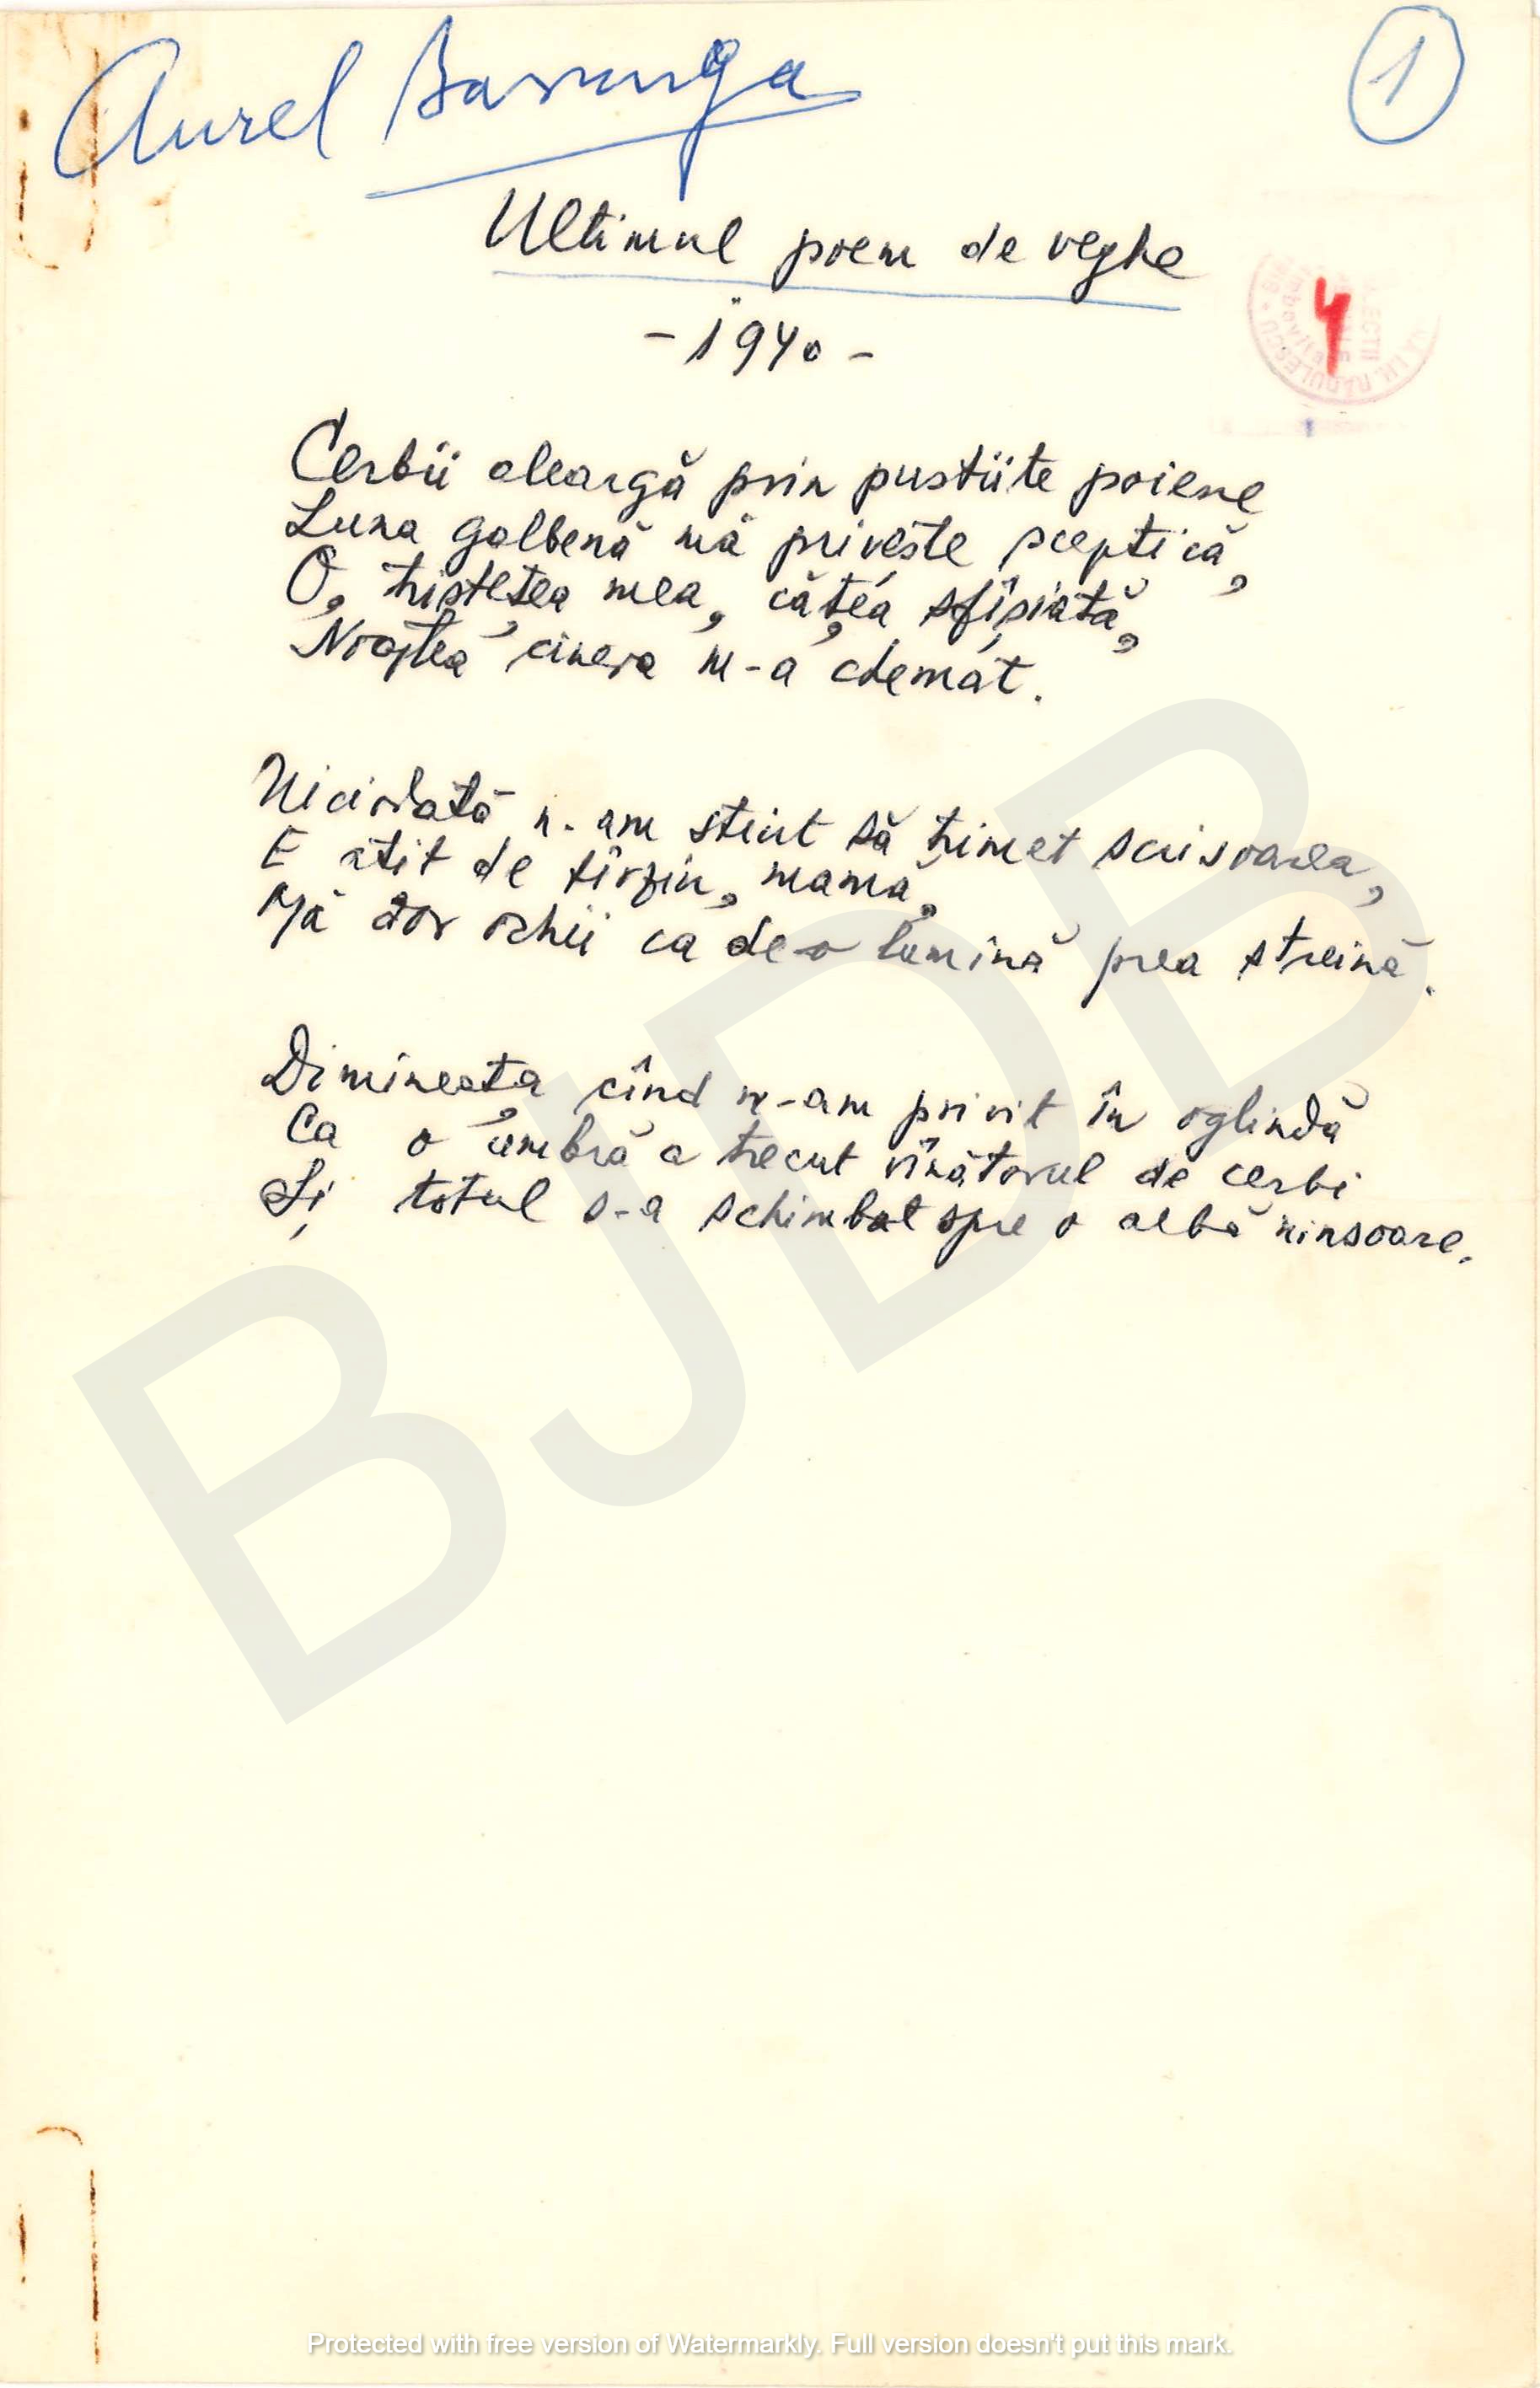 Aurel Baranga
1
Ultimul poem de veghe
- 1940 -
4
Cerbii aleargă prin pustiite poiene
Luna galbenă mă privește sceptică,
O, tristețea mea, cățea sfîșiată,
Noaptea cineva m-a chemat.
Niciodată n-am știut să trimet scrisoarea,
E atît de tîrziu, mamă,
Mă dor ochii ca de-o lumină prea streină.
Dimineața cînd m-am privit în oglindă
Ca o umbră a trecut vînătorul de cerbi
Și totul s-a schimbat spre o albă ninsoare.
BJDB
Protected with free version of Watermarkly. Full version doesn't put this mark.